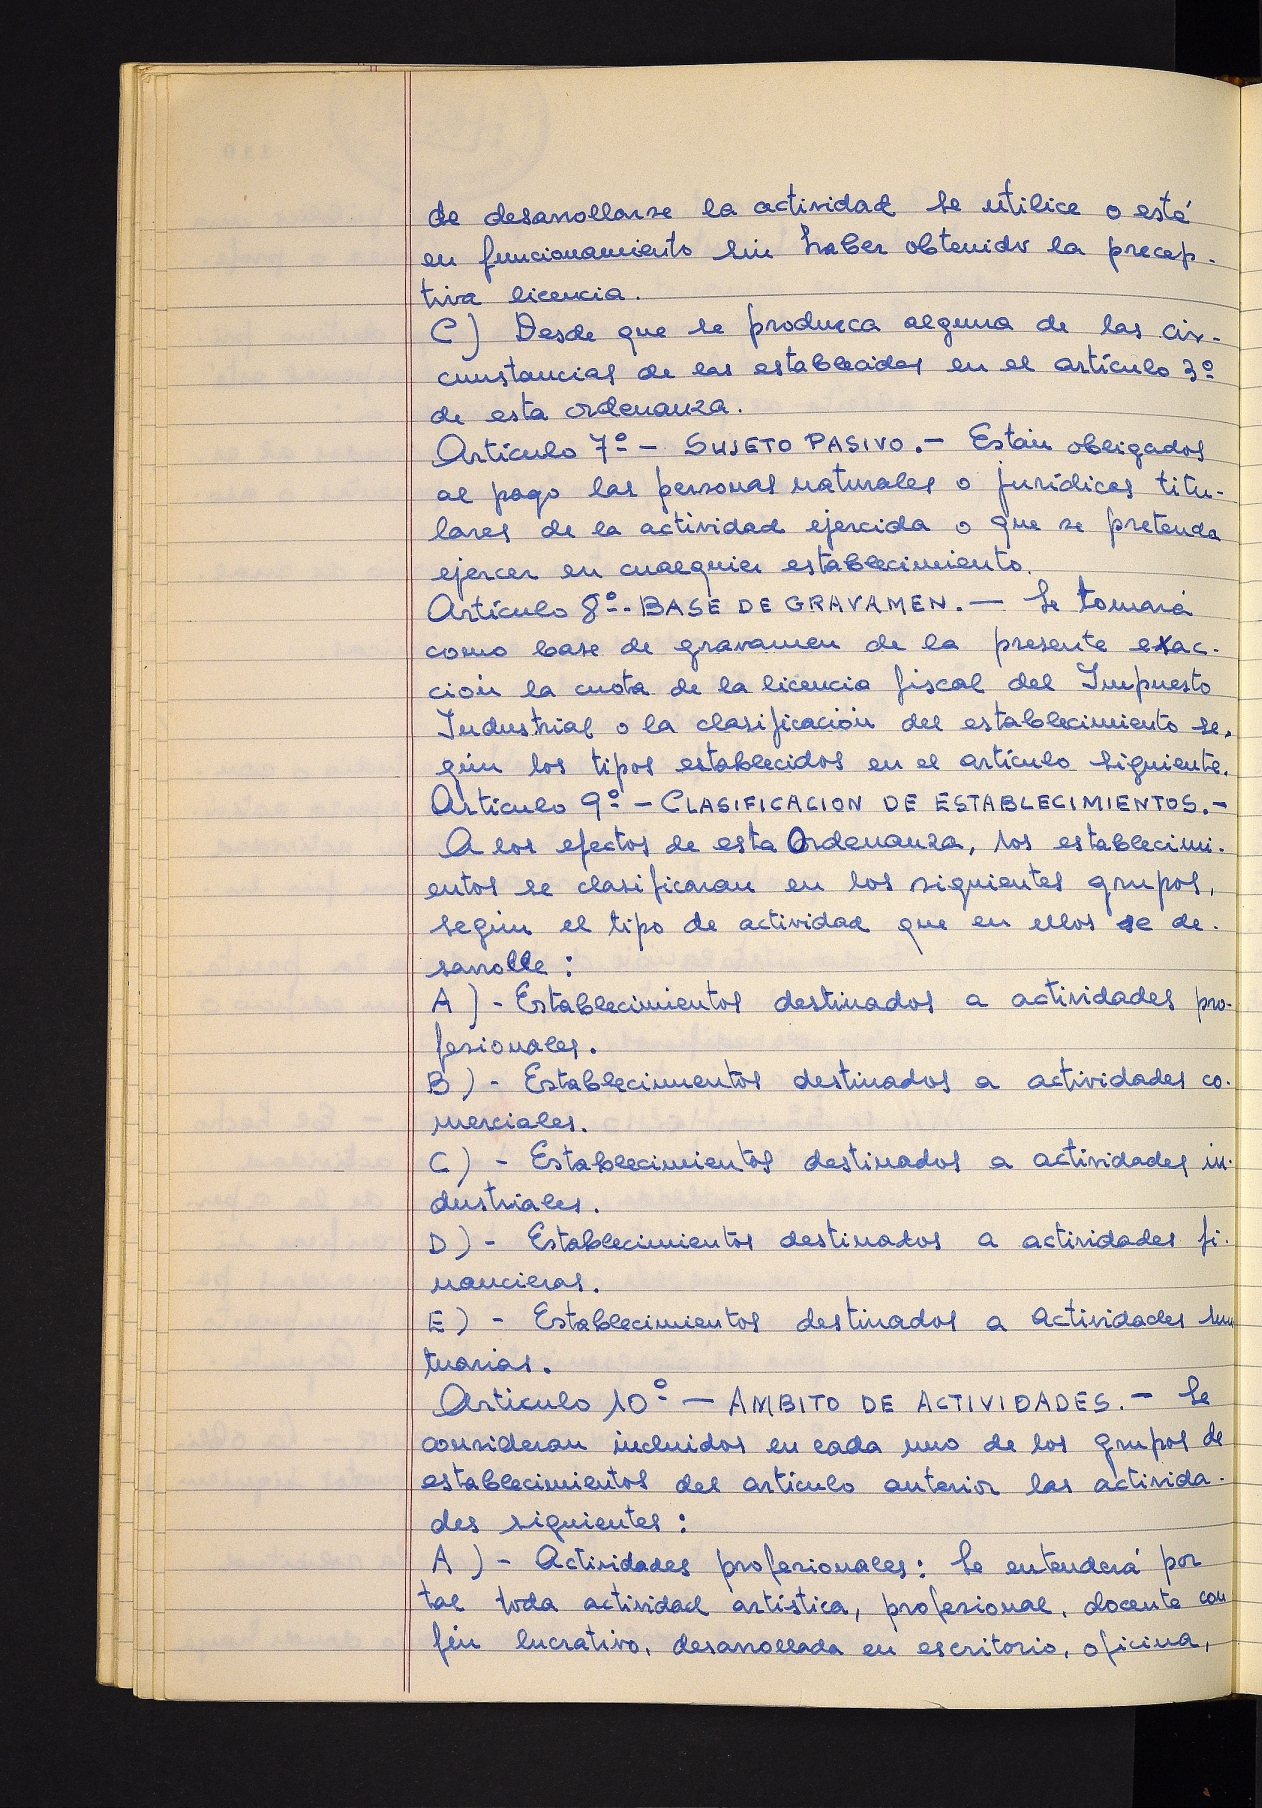 de desarrollarse la actividad se utilice o esté
en funcionamiento sin haber obtenido la precep-
tiva licencia.
C) Desde que se produzca alguna de las cir-
cunstancias de las establecidas en el artículo 3º
de esta ordenanza.
Artículo 7º - SUJETO PASIVO. - Están obligados
al pago las personas naturales o jurídicas titu-
lares de la actividad ejercida o que se pretenda
ejercer en cualquier establecimiento.
Artículo 8º.- BASE DE GRAVAMEN. - Se tomará
como base de gravamen de la presente exac-
ción la cuota de la licencia fiscal del Impuesto
Industrial o la clasificación del establecimiento se-
gún los tipos establecidos en el artículo siguiente.
Artículo 9º - CLASIFICACION DE ESTABLECIMIENTOS. -
A los efectos de esta Ordenanza, los establecimi-
entos se clasificaran en los siguientes grupos,
según el tipo de actividad que en ellos se de-
sarrolle:
A) - Establecimientos destinados a actividades pro-
fesionales.
B) - Establecimientos destinados a actividades co-
merciales.
C) - Establecimientos destinados a actividades in-
dustriales.
D) - Establecimientos destinados a actividades fi-
nancieras.
E) - Establecimientos destinados a actividades sun
tuarias.
Artículo 10º - AMBITO DE ACTIVIDADES. - Se
consideran incluidos en cada uno de los grupos de
establecimientos del artículo anterior las activida-
des siguientes:
A) - Actividades profesionales: Se entenderá por
tal toda actividad artística, profesional, docente con
fin lucrativo, desarrollada en escritorio, oficina,